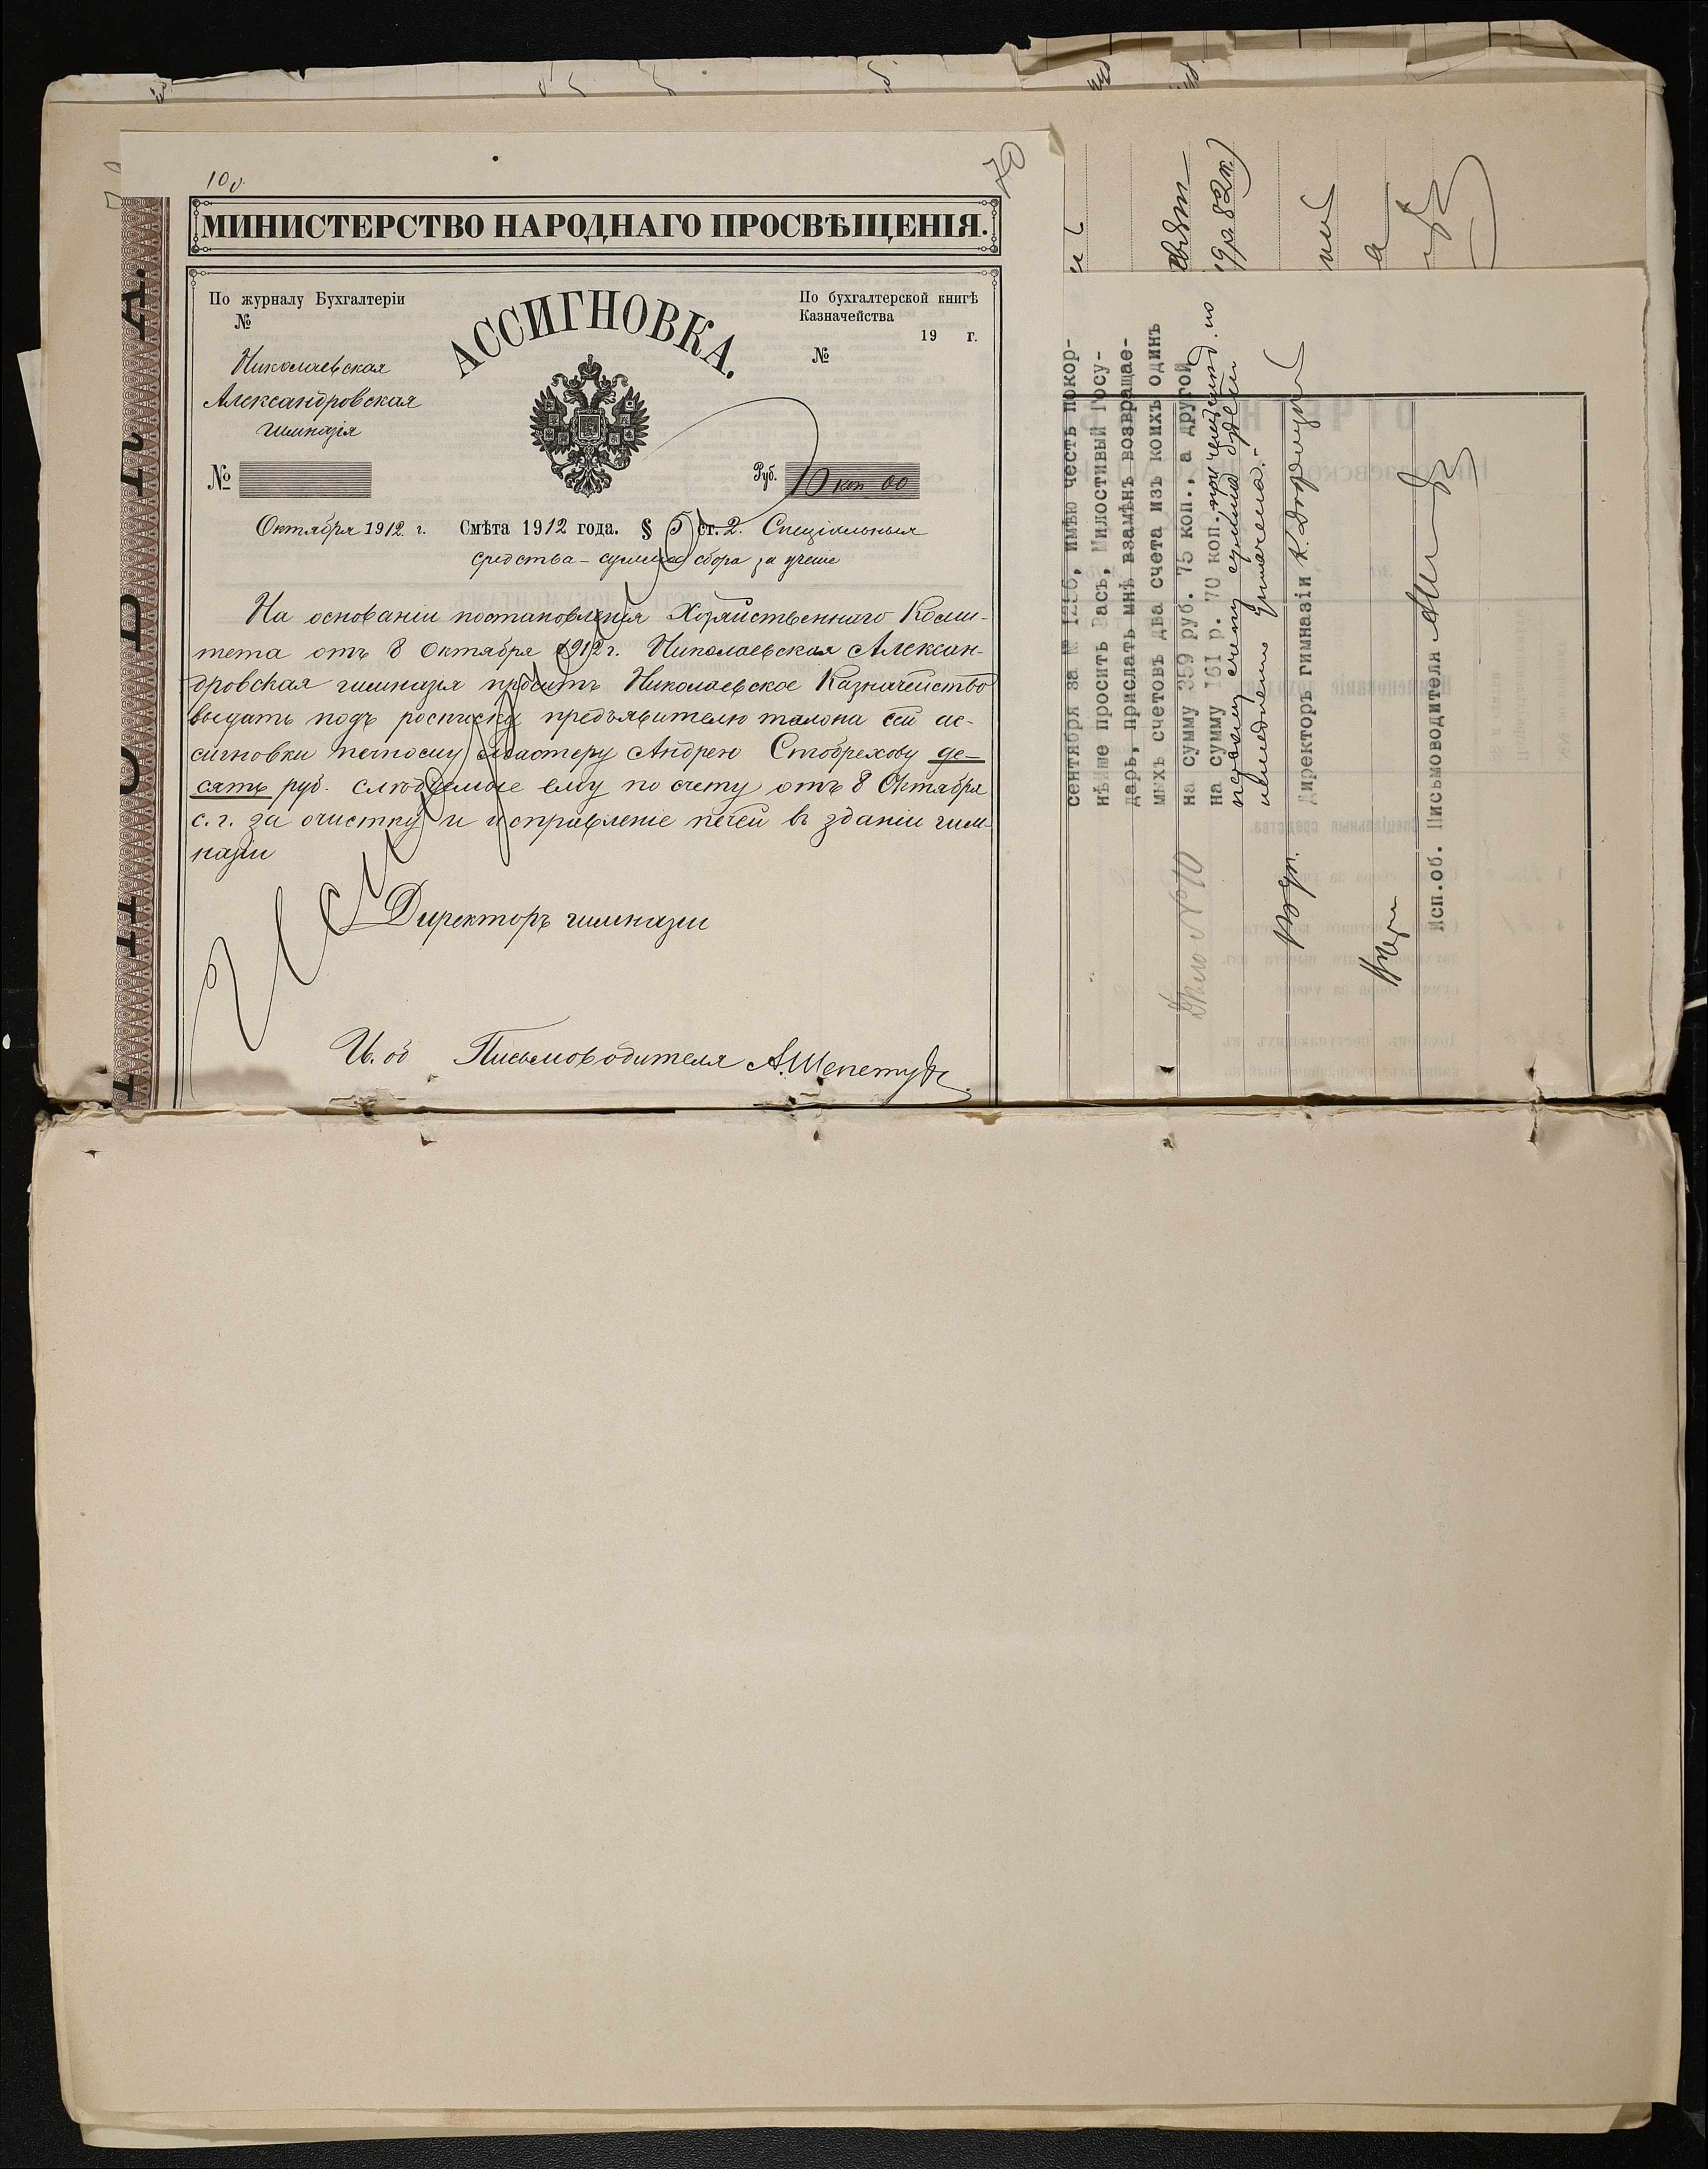 10 р.
70
МИНИСТЕРСТВО НАРОДНАГО ПРОСВѢЩЕНІЯ.
По журналу Бухгалтеріи
№
АССИГНОВКА.
По бухгалтерской книгѣ
Казначейства
19 г.
№
Николаевская
Александровская
гимназія
№
Руб. 10 коп 00
Октября 1912 г. Смѣта 1912 года. § 5 ст. 2. Спеціальныя
средства – сумма сбора за ученіе
На основаніи постановленія Хозяйственнаго Коми-
тета отъ 8 Октября 1912 г. Николаевская Алексан-
дровская гимназія проситъ Николаевское Казначейство
выдать подъ росписку предъявителю талона сей ас-
сигновки печному мастеру Андрею Стобрехову де-
сять руб. слѣдуемые ему по счету отъ 8 Октября
с. г. за очистку и исправленіе печей въ зданіи гим-
назіи
Директоръ гимназіи
И. об Письмоводителя А. Шепетуд
сентября за № 1256, имѣю честь покор-
нѣйше просить Васъ, Милостивый Госу-
дарь, прислать мнѣ взамѣнъ возвращае-
мыхъ счетовъ два счета изъ коихъ одинъ
на сумму 359 руб. 75 коп., а другой
на сумму 161 р. 70 коп., при чемъ по
первому счету сумма будетъ
немедленно уплачена.-
Дѣло № 10
Директоръ гимназіи К.
Исп.об. Письмоводителя